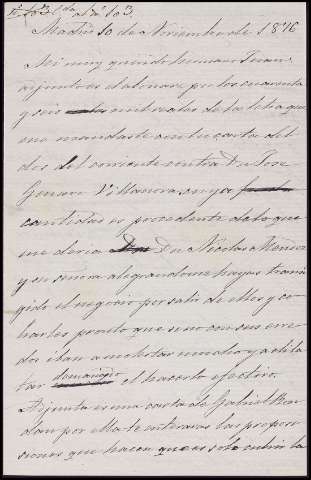 Madrid 10 de Noviembre de 1876
Mi muy querido hermano Juan:
adjunto el abonaré por los cuarenta
y seis mil reales de la letra que
me mandaste en tu carta del
dos del corriente contra Dn José
Genaro Villanova, cuya
cantidad es procedente de lo que
me debia Dn Nicolas
y su señora alegrandome hayas transi
gido el negocio por salir de ellos y co-
brarles pronto que sino con sus enre-
dos iban a molestar mucho y a dila-
tar demasiado el hacerlo efectivo.
Adjunta es una carta de Gabriel Ron-
dan por ella te enteraras las proposi-
ciones que hacen que es solo cubrir la